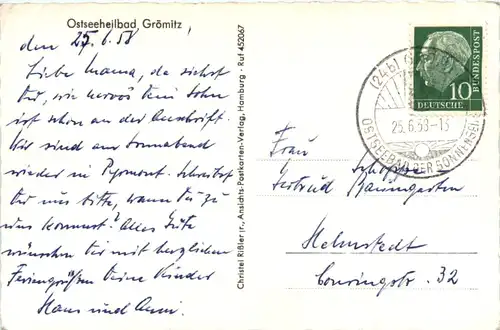 Ostseeheilbad Grömitz
den 25.6.58
Liebe Mama, da siehst
Du, wie nervös Dein Sohn
ist schon an der Anschrift.
Wir sind am Sonnabend
wieder in Pyrmont. Schreibst
Du uns bitte, wann Du zu
uns kommst? Alles Gute
wünschen Dir mit herzlichen
Feriengrüßen Deine Kinder
Hans und Anni.
Christel Rißler jr., Ansichts-Postkarten-Verlag, Hamburg · Ruf 452067
(24b)
25.6.58-15
OSTSEEBAD DER SONNENSEITE
10
DEUTSCHE
BUNDESPOST
Frau
Gertrud Baumgarten
Helmstedt
Conringstr. 32